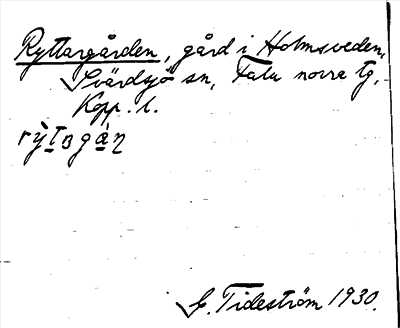 Ryttargården, gård i Holmsveden,
Svärdsjö sn, Falu norra tg,
Kopp. l.
G. Tideström 1930.